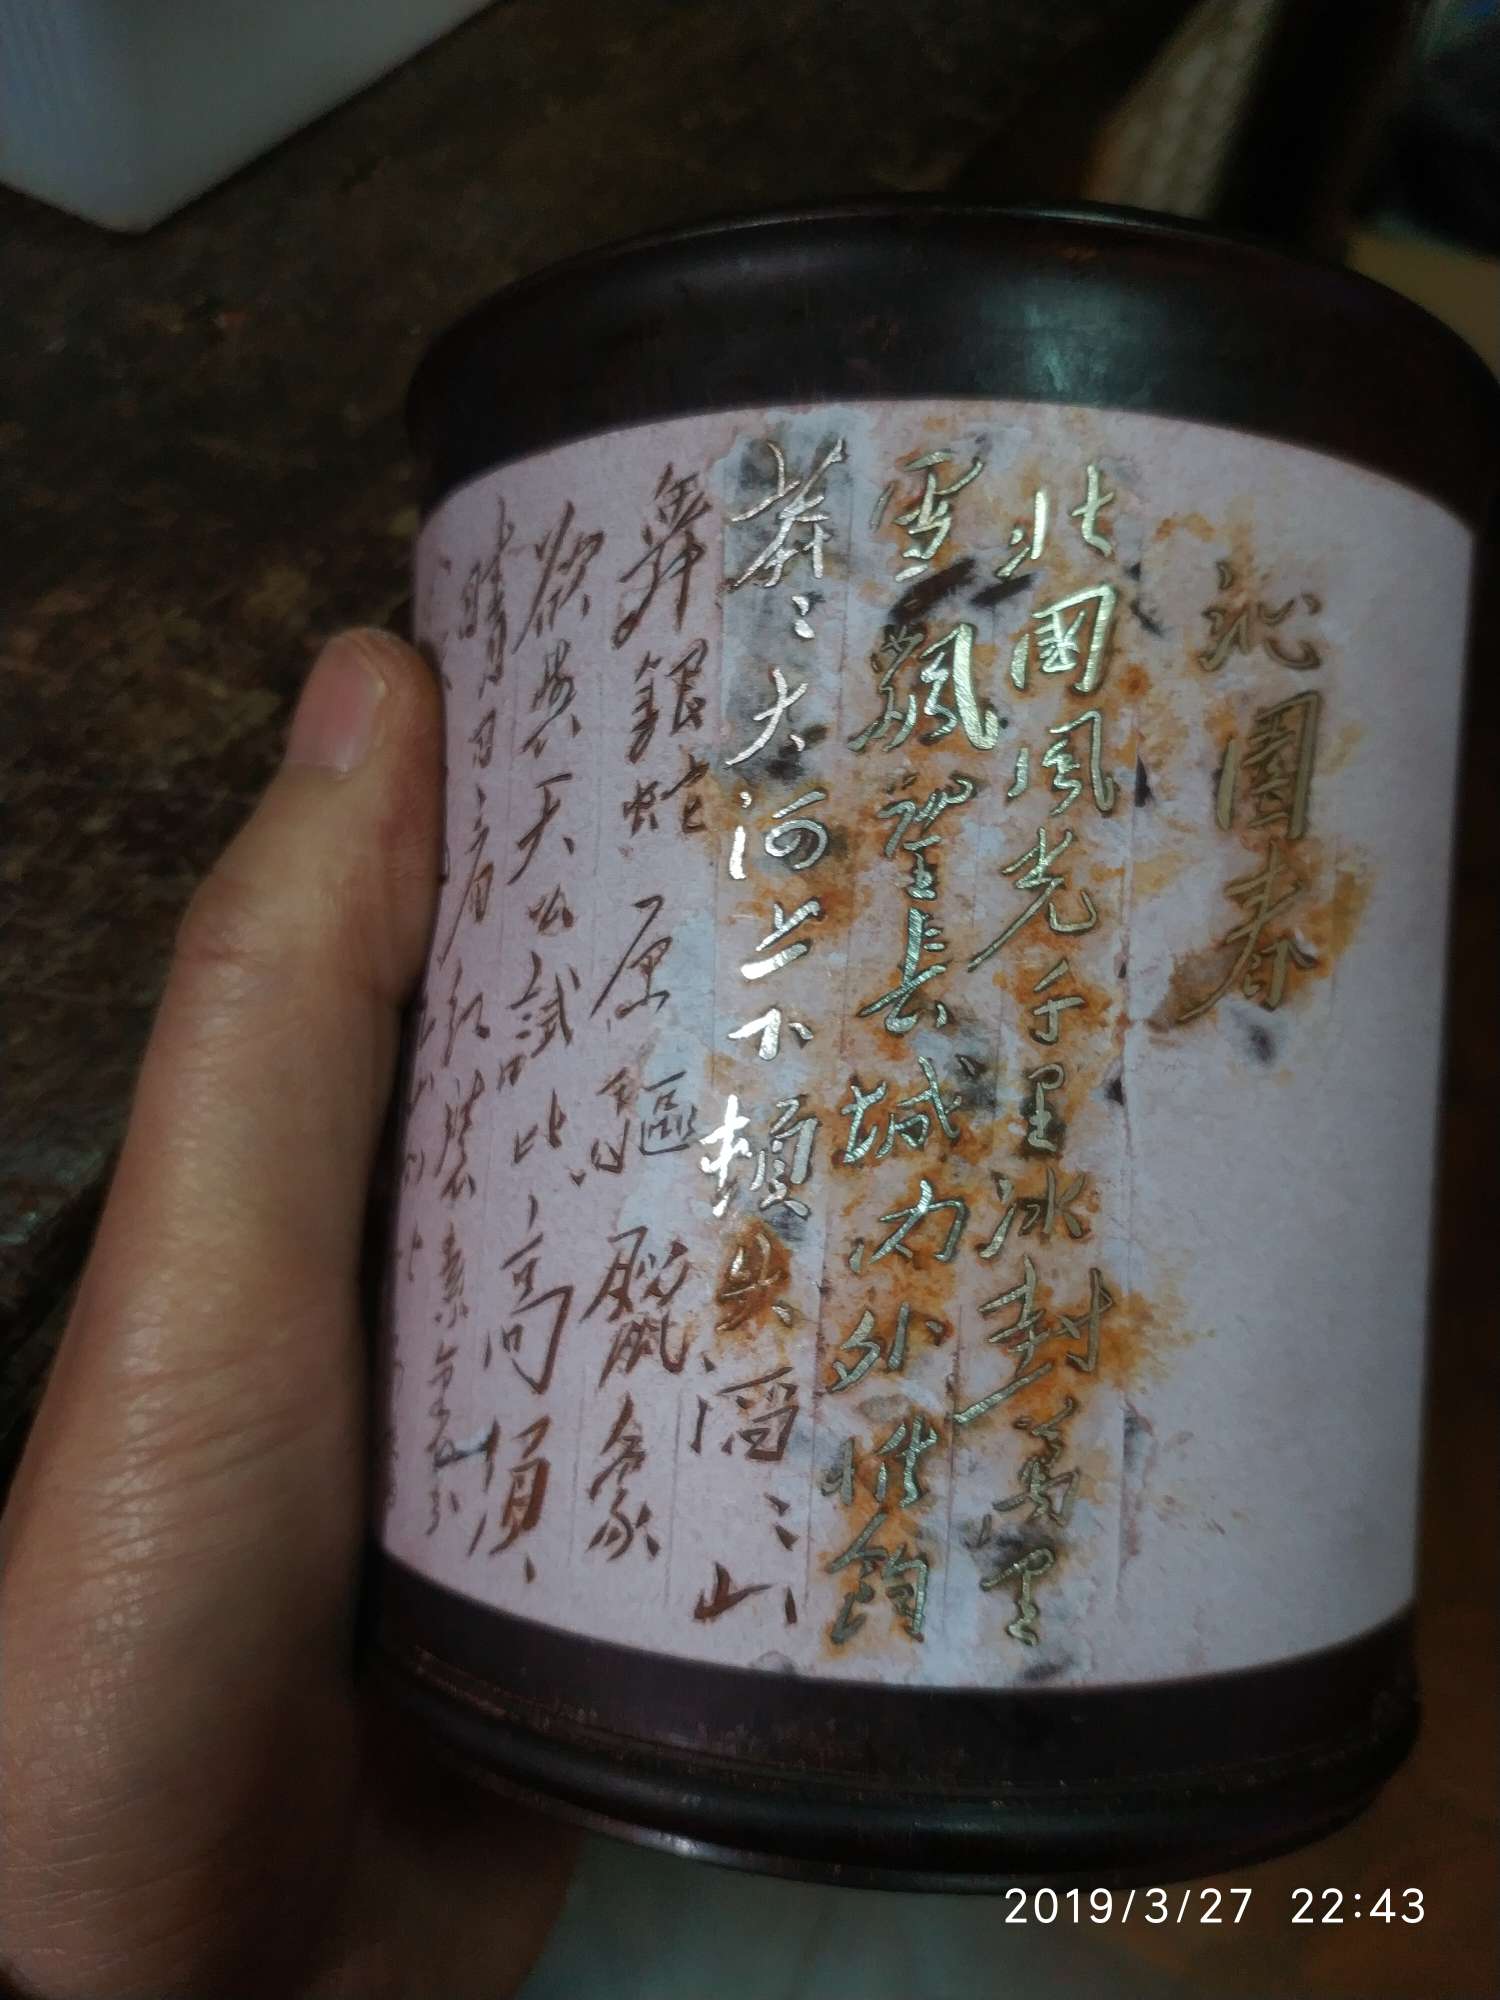 沁園春
北國風光千里冰封萬里
雪飄望長城內外惟餘
莽〻大河上下頓失滔〻山
舞銀蛇原驅臘象
欲與天公試比高須
晴日看紅裝素
2019/3/27 22:43